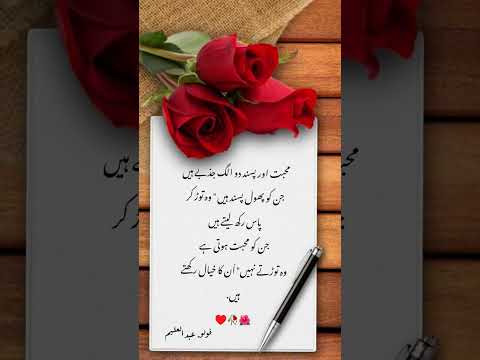 محبت اور پسند دو الگ جذبے ہیں
جن کو پھول پسند ہیں" وہ توڑ کر
پاس رکھ لیتے ہیں
جن کو محبت ہوتی ہے
وہ توڑتے نہیں" اُن کا خیال رکھتے
ہیں.
♥️🥀🌺
فوٹو۔ عبدالعلیم